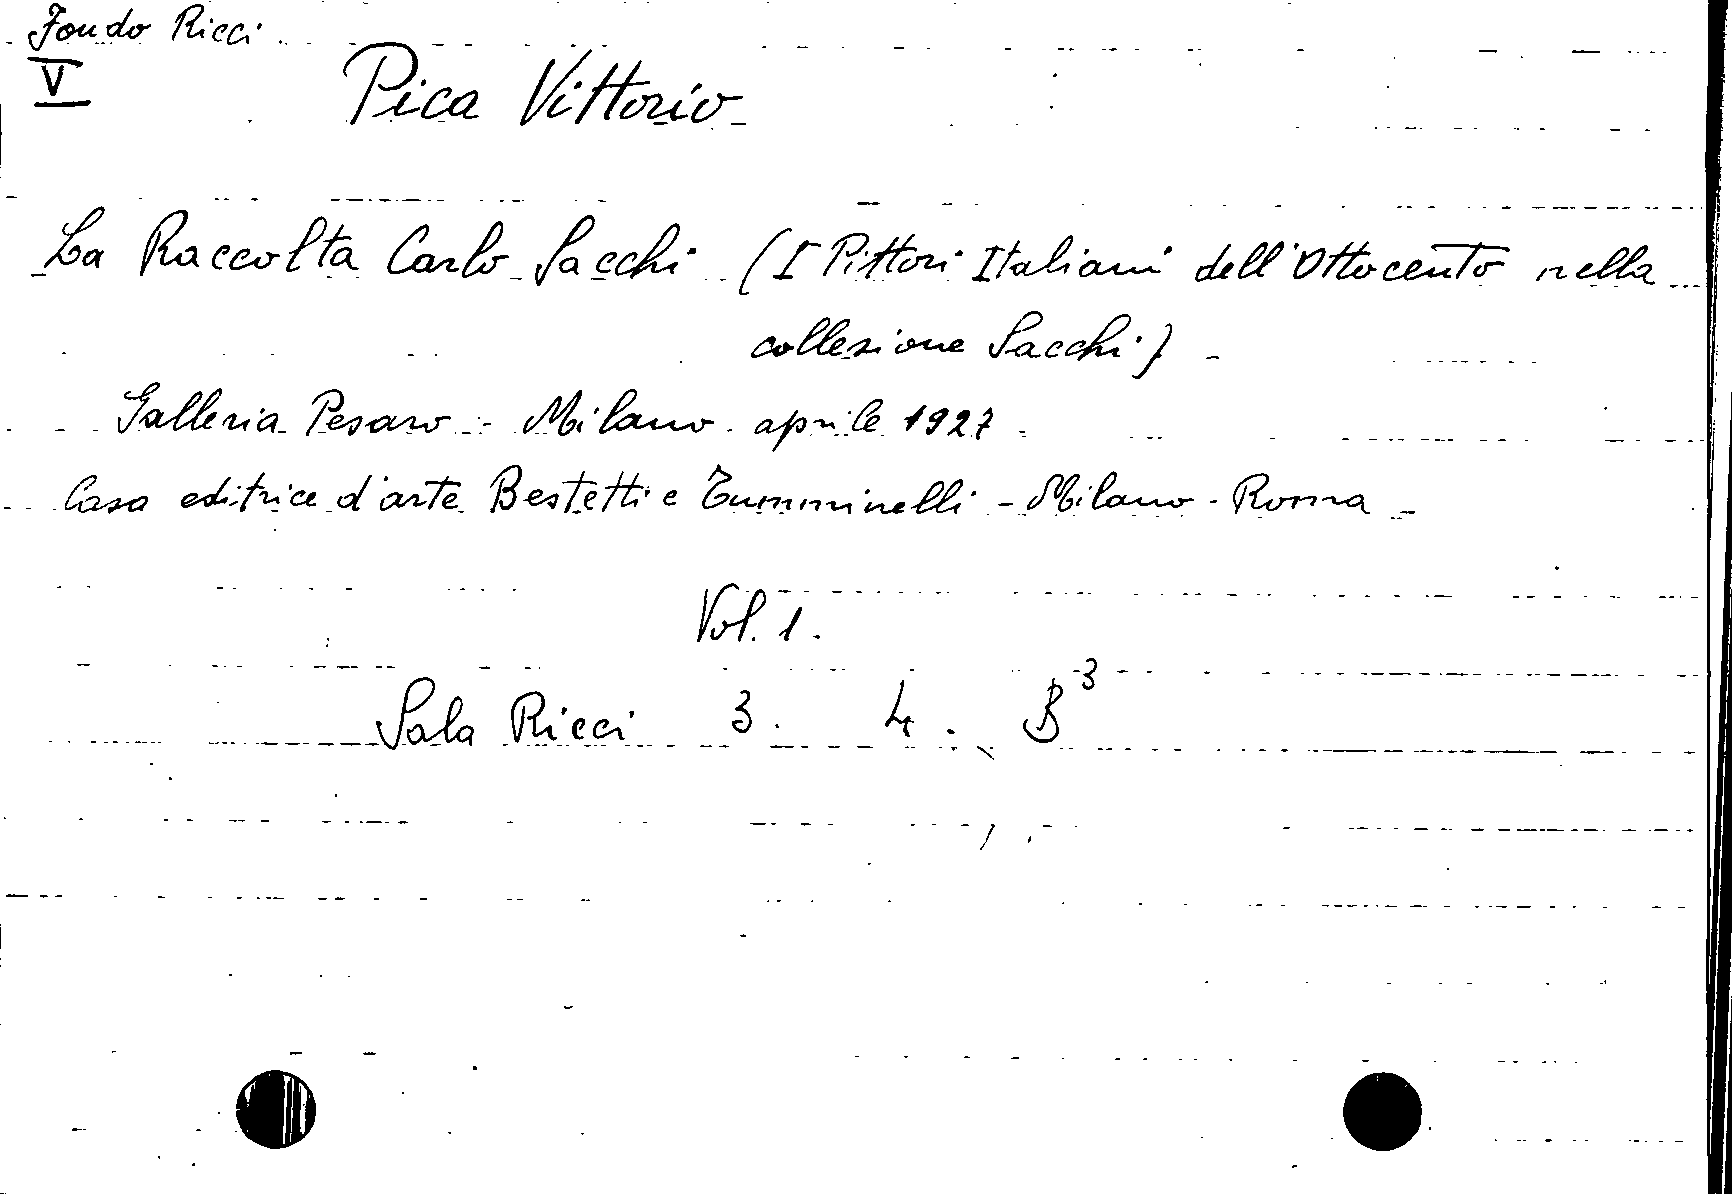 Fondo Ricci
V
Pica Vittorio
La Raccolta Carlo Sacchi (I Pittori Italiani dell'Ottocento nella
collezione Sacchi)
Galleria Pesaro - Milano - aprile 1927
Casa editrice d'arte Bestetti e Tumminelli - Milano - Roma -
Vol. 1.
Sala Ricci 3. 4. B³